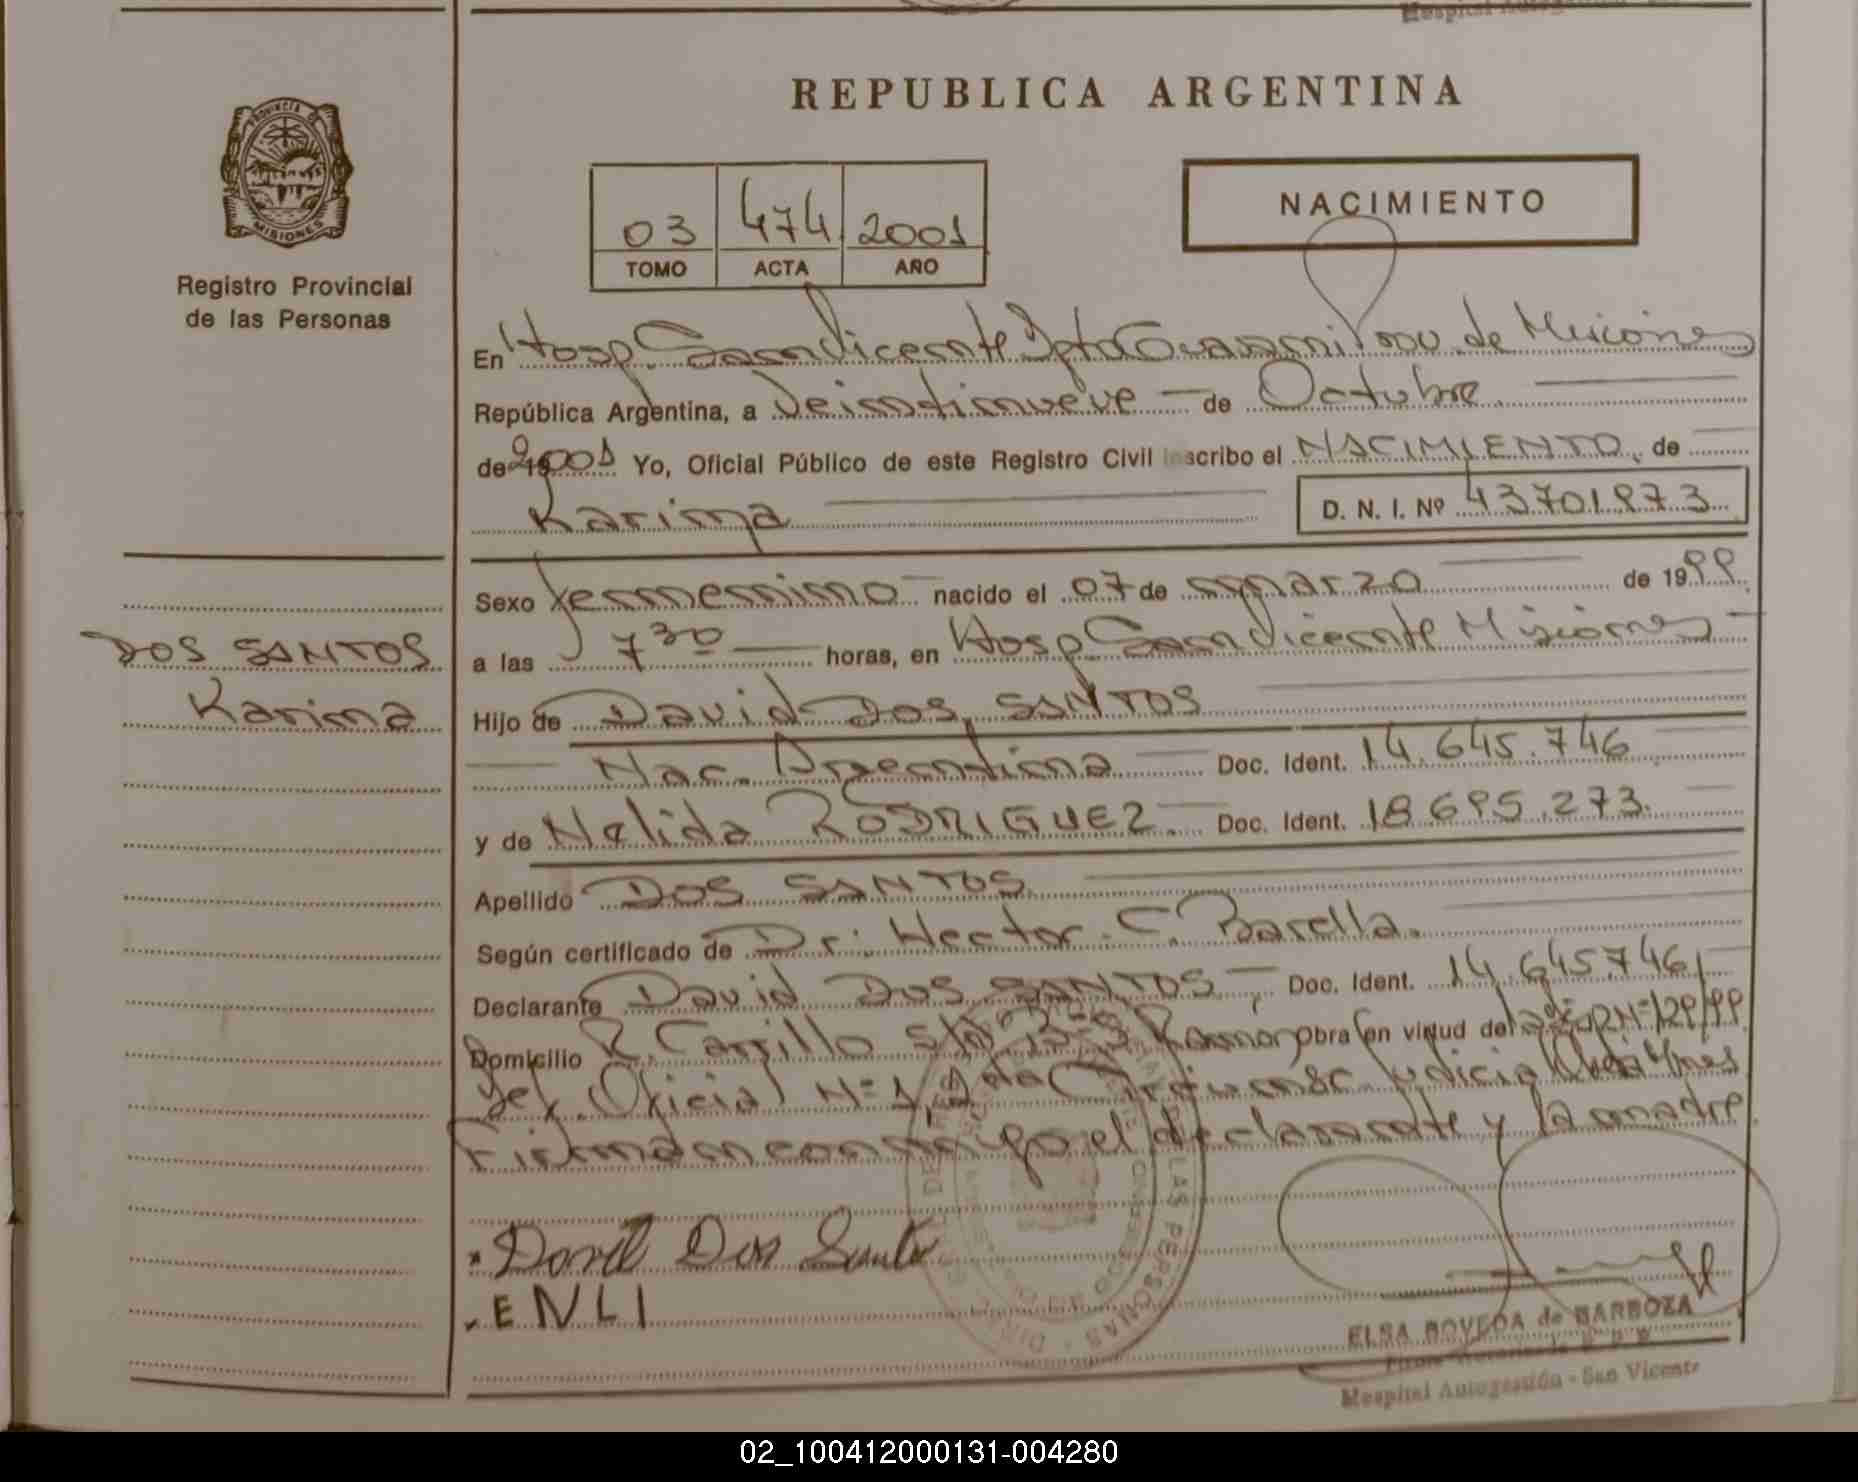 REPUBLICA ARGENTINA
PROVINCIA DE
MISIONES
Registro Provincial
de las Personas
03 474 2001
TOMO ACTA AÑO
NACIMIENTO
En Hosp. San Vicente Dpto Guarani Prov. de Misiones
República Argentina, a Veintinueve de Octubre
de 2001 Yo, Oficial Público de este Registro Civil inscribo el NACIMIENTO, de
Karina
D. N. I. Nº 43701973
Sexo femenino nacido el 07 de marzo de 1999
a las 7 30 horas, en Hosp San Vicente Misiones
DOS SANTOS
Karina
Hijo de David DOS SANTOS
Nac. Argentina Doc. Ident. 14.645.746
y de Nelida RODRIGUEZ. Doc. Ident. 18.695.273.
Apellido DOS SANTOS
Según certificado de Dr. Hector C. Barella.
Declarante David DOS SANTOS Doc. Ident. 14.645746
Domicilio R. Carrillo Obra en virtud de
Oficial Nº 1,
Firman conmigo el declarante y la madre
David Dos Santos
ENLI
DE LAS PERSONAS
ELSA BOVEDA de BARBOZA
Hospital Autogestión - San Vicente
02_100412000131-004280